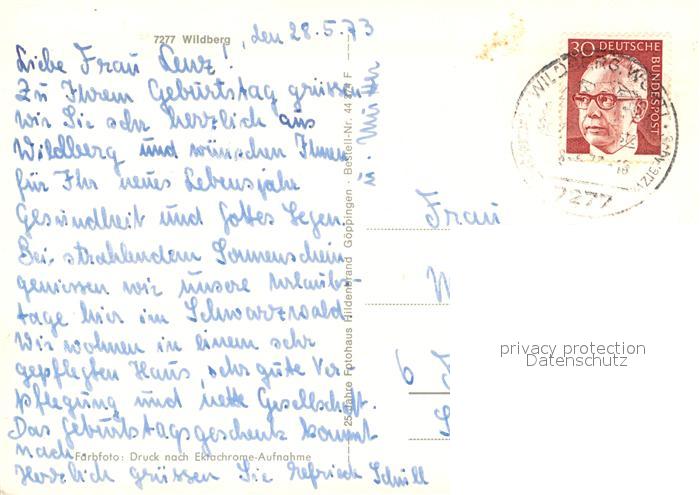 7277 Wildberg
, den 28.5.73
Liebe Frau Lenz!
Zu Ihrem Geburtstag grüssen
wir Sie sehr herzlich aus
Wildberg und wünschen Ihnen
für Ihr neues Lebensjahr
Gesundheit und Gottes Segen.
Bei strahlendem Sonnenschein
geniessen wir unsere Urlaubs-
tage hier im Schwarzwald.
Wir wohnen in einem sehr
gepflegten Haus, sehr gute Ver
pflegung und nette Gesellschaft.
Das Geburtstagsgeschenk kommt
nach.
Farbfoto: Druck nach Ektachrome-Aufnahme
Herzlich grüssen Sie
u. Mutter
25 Jahre Fotohaus Hildenbrand Göppingen · Bestell-Nr. 44 274 F
30 DEUTSCHE
BUNDESPOST
WILDBERG
7277
Frau
W
6
privacy protection
Datenschutz